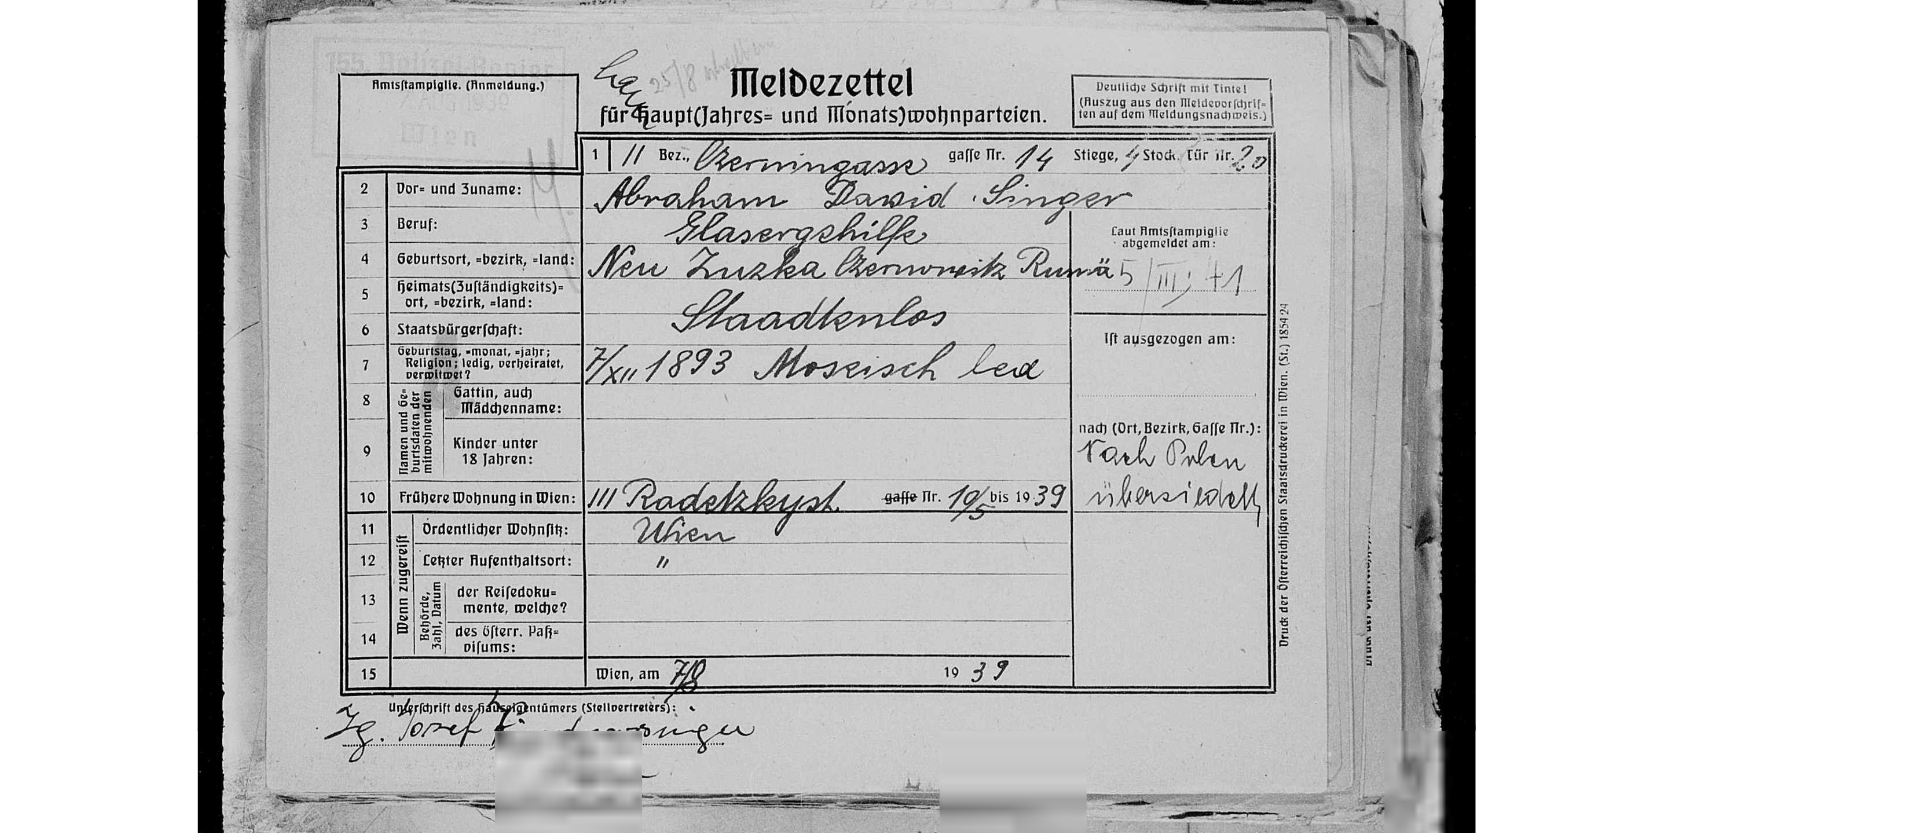 155. Polizei-Revier
7. AUG 1939
Wien
25/8
Amtsstampiglie. (Anmeldung.)
Meldezettel
für Haupt(Jahres- und Monats)wohnparteien.
Deutliche Schrift mit Tinte!
(Auszug aus den Meldevorschrif-
ten auf dem Meldungsnachweis.)
1 II Bez., Czerningasse gasse Nr. 14 Stiege, 4 Stock. Tür Nr. 20
2 Vor- und Zuname: Abraham David Singer
3 Beruf: Glasergehilfe
Laut Amtsstampiglie
abgemeldet am:
4 Geburtsort, -bezirk, -land: Neu Zuzka Czernowitz Rumä
5/III 41
5 Heimats(Zuständigkeits)-
ort, -bezirk, -land:
6 Staatsbürgerschaft: Staadtenlos
Ist ausgezogen am:
7 Geburtstag, -monat, -jahr;
Religion; ledig, verheiratet,
verwitwet? 7/XII 1893 Moseisch led
Namen und Ge-
burtsdaten der
mitwohnenden
8 Gattin, auch
Mädchenname:
9 Kinder unter
18 Jahren:
nach (Ort, Bezirk, Gasse Nr.):
Nach Polen
übersiedelt
10 Frühere Wohnung in Wien: III Radetzkyst. gasse Nr. 10/5 bis 1939
Wenn zugereist
11 Ordentlicher Wohnsitz: Wien
12 Letzter Aufenthaltsort: "
Behörde,
Zahl, Datum
13 der Reisedoku-
mente, welche?
14 des österr. Paß-
visums:
15 Wien, am 7/8 1939
Unterschrift des Hauseigentümers (Stellvertreters):
Josef
Druck der Österreichischen Staatsdruckerei in Wien. (St.) 1854 24